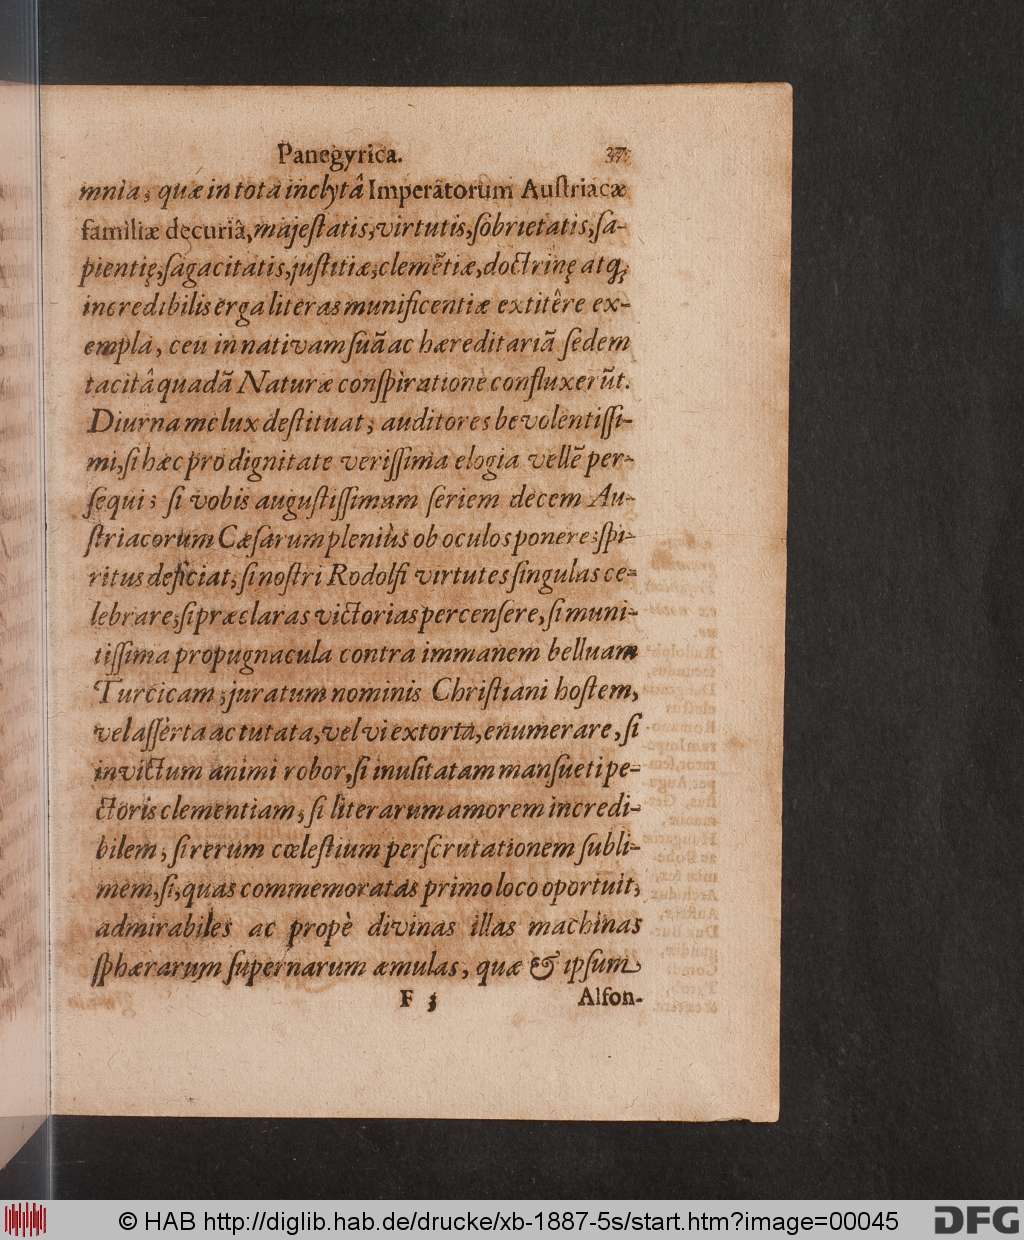 Panegyrica. 37
mnia; quæ in totâ inclytâ Imperatorum Auſtriacæ
familiæ decuriâ, majeſtatis, virtutis, ſobrietatis, ſa-
pientię, ſagacitatis, juſtitiæ, clemẽtiæ, doctrinę atq;
incredibilis erga literas munificentiæ extitêre ex-
empla, ceu in nativam ſuã ac hæreditariã ſedem
tacitâ quadã Naturæ conſpiratione confluxerũt.
Diurna me lux deſtituat; auditores bevolentiſſi-
mi, ſi hæc pro dignitate veriſſima elogia vellẽ per-
ſequi; ſi vobis auguſtiſſimam ſeriem decem Au-
ſtriacorum Cæſarum pleniùs ob oculos ponere; ſpi-
ritus deficiat; ſi noſtri Rodolfi virtutes ſingulas ce-
lebrare; ſi præclaras victorias percenſere, ſi muni-
tiſſima propugnacula contra immanem belluam
Turcicam; juratum nominis Chriſtiani hoſtem,
vel aſſerta ac tutata, vel vi extorta, enumerare, ſi
invictum animi robor, ſi inuſitatam manſueti pe-
ctoris clementiam; ſi literarum amorem incredi-
bilem; ſi rerum cœleſtium perſcrutationem ſubli-
mem, ſi, quas commemoratas primo loco oportuit,
admirabiles ac propè divinas illas machinas
ſphærarum ſupernarum æmulas, quæ & ipſum
F 3 Alfon-
© HAB http://diglib.hab.de/drucke/xb-1887-5s/start.htm?image=00045 DFG